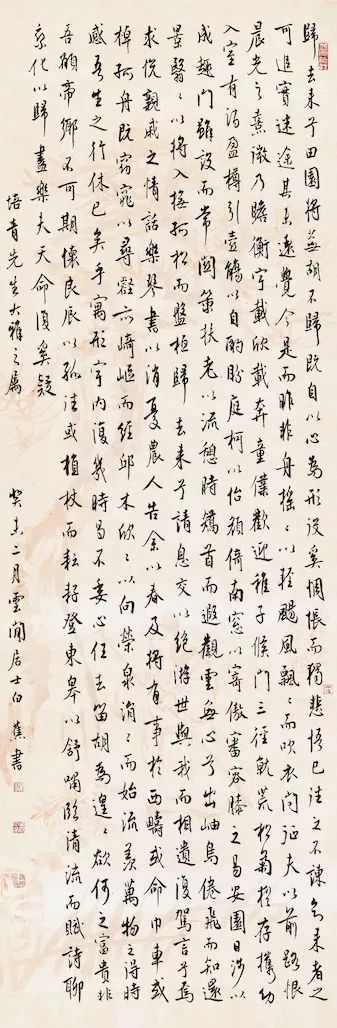 歸去来兮田園將蕪胡不歸既自以心為形役奚惆悵而獨悲悟已往之不諫知来者之
可追實迷途其未遠覺今是而昨非舟搖〻以輕颺風飄〻而吹衣問征夫以前路恨
晨光之熹微乃瞻衡宇載欣載奔童僕歡迎稚子候門三徑就荒松菊猶存攜幼
入室有酒盈樽引壺觴以自酌眄庭柯以怡顏倚南窓以寄傲審容膝之易安園日涉以
成趣門雖設而常關策扶老以流憩時矯首而遐觀雲無心兮出岫鳥倦飛而知還
景翳〻以將入撫孤松而盤桓歸去来兮請息交以絕游世與我而相遺復駕言兮焉
求悅親戚之情話樂琴書以消憂農人告余以春及將有事於西疇或命巾車或
棹孤舟既窈窕以尋壑亦崎嶇而經邱木欣〻以向榮泉涓〻而始流羨萬物之得時
感吾生之行休已矣乎寓形宇內復幾時曷不委心任去留胡為遑〻欲何之富貴非
吾願帝鄉不可期懷良辰以孤往或植杖而耘耔登東皋以舒嘯臨清流而賦詩聊
乘化以歸盡樂夫天命復奚疑
培青先生大雅之屬
癸未二月雲間居士白蕉書